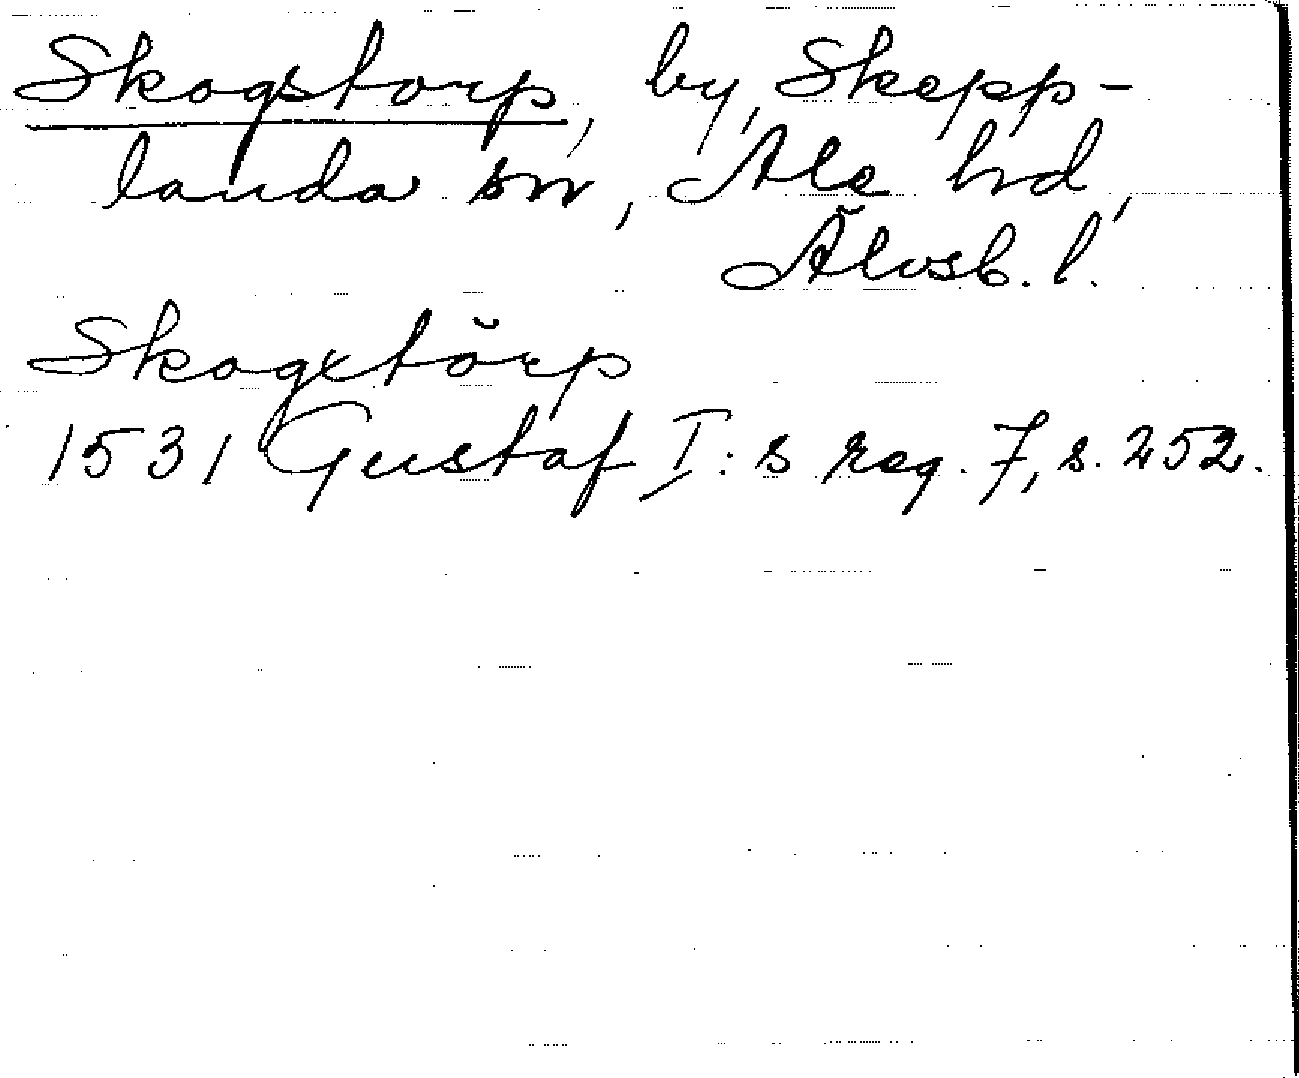 Skogstorp, by, Skepp-
landa sn, Ale hd,
Älvsb. l.
Skogxtörp
1531 Gustaf I:s reg. 7, s. 252.